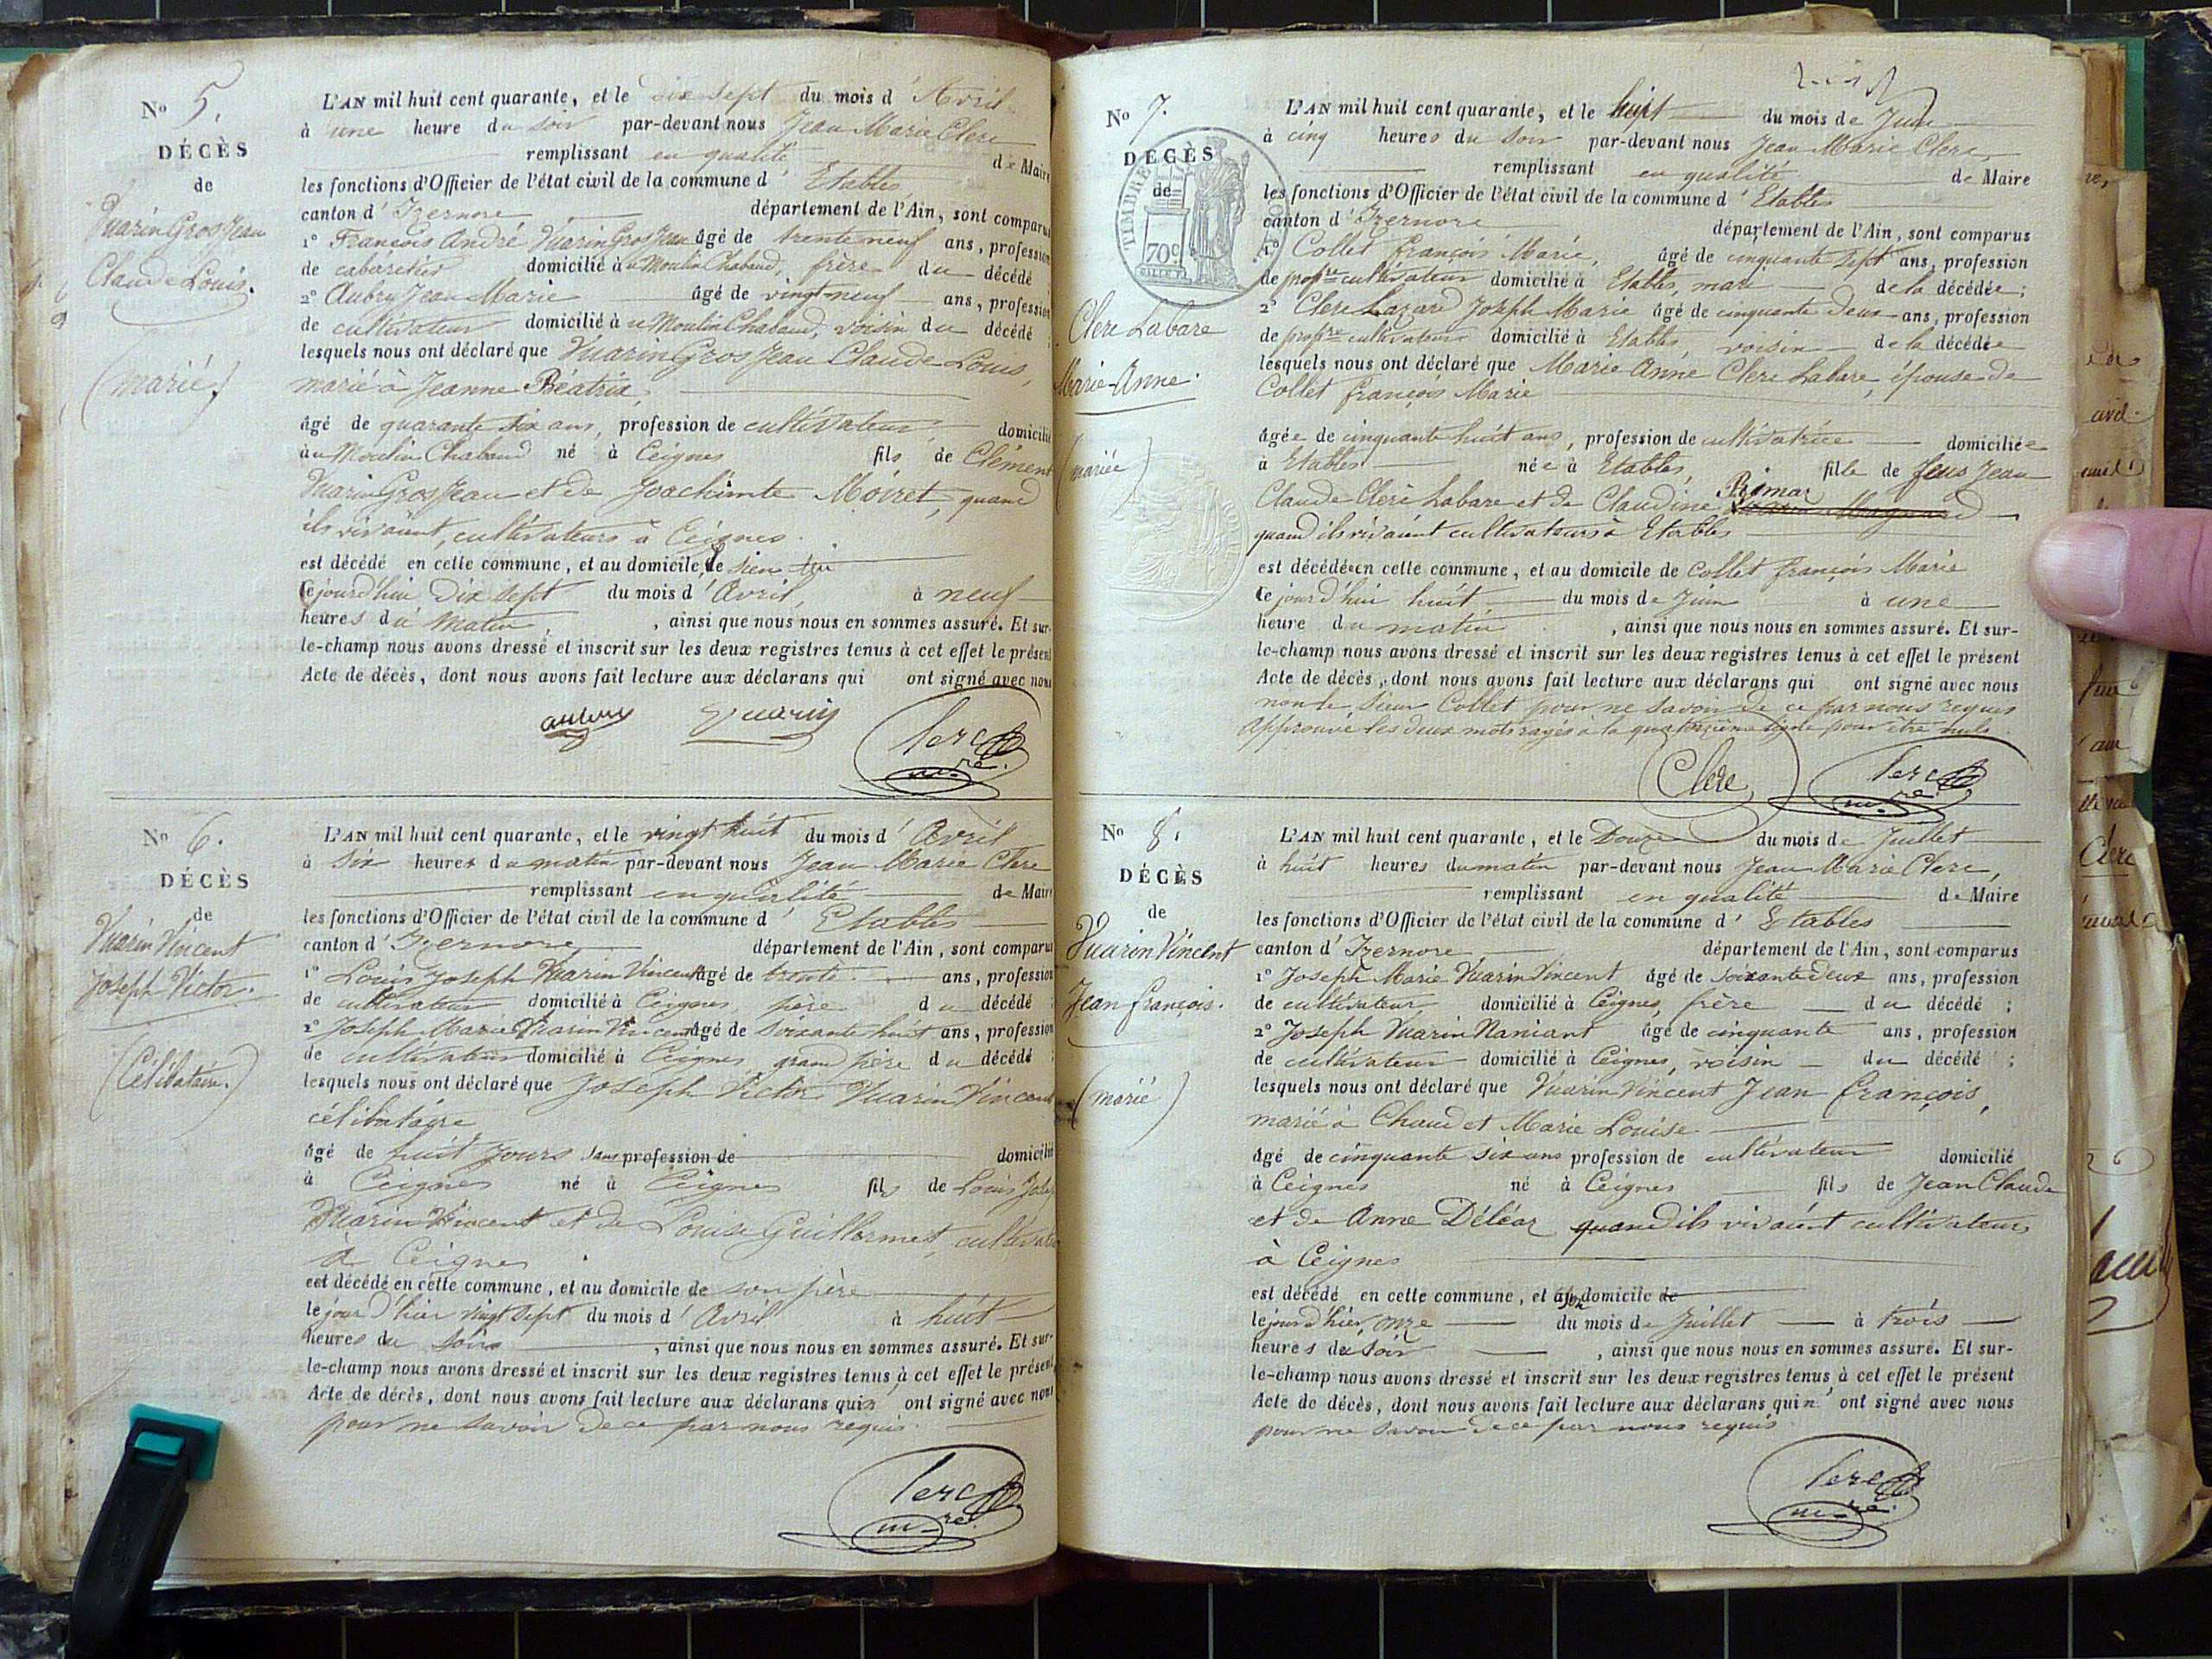 N° 5.
DÉCÈS
de
Vuarin Gros Jean
Claude Louis.
(marié)
L'AN mil huit cent quarante, et le dix sept du mois d'Avril
à une heure du soir par-devant nous Jean Marie Clerc
remplissant en qualité de Maire
les fonctions d'Officier de l'état civil de la commune d'Etables
canton d'Izernore département de l'Ain, sont comparus
1° François André Vuarin Gros Jean âgé de trente neuf ans, profession
de cabaretier domicilié au Moulin Chabaud, frère du décédé
2° Aubry Jean Marie âgé de vingt neuf ans, profession
de cultivateur domicilié au Moulin Chabaud, voisin du décédé ;
lesquels nous ont déclaré que Vuarin Gros Jean Claude Louis,
marié à Jeanne Béatrix,
âgé de quarante six ans, profession de cultivateur domicilié
au Moulin Chabaud né à Ceignes fils de Clément
Vuarin Gros Jean et de Joachimte Moiret, quand
ils vivaient, cultivateurs à Ceignes.
est décédé en cette commune, et au domicile, le sien
le jourd'hui dix sept du mois d'Avril, à neuf
heures du matin, ainsi que nous nous en sommes assuré. Et sur-
le-champ nous avons dressé et inscrit sur les deux registres tenus à cet effet le présent
Acte de décès, dont nous avons fait lecture aux déclarans qui ont signé avec nous
aubry Vuarin Clerc mre.
N° 6.
DÉCÈS
de
Vuarin Vincent
Joseph Victor.
(Célibataire.)
L'AN mil huit cent quarante, et le vingt huit du mois d'Avril
à six heures du matin par-devant nous Jean Marie Clerc
remplissant en qualité de Maire
les fonctions d'Officier de l'état civil de la commune d'Etables
canton d'Izernore département de l'Ain, sont comparus
1° Louis Joseph Vuarin Vincent âgé de trente ans, profession
de cultivateur domicilié à Ceignes père du décédé ;
2° Joseph Marie Vuarin Vincent âgé de soixante huit ans, profession
de cultivateur domicilié à Ceignes grand père du décédé ;
lesquels nous ont déclaré que Joseph Victor Vuarin Vincent
célibataire
âgé de huit jours sans profession de domicilié
à Ceignes né à Ceignes fils de Louis Joseph
Vuarin Vincent et de Louise Guillermet, cultivateurs
à Ceignes
est décédé en cette commune, et au domicile de son père
le jour d'hier vingt sept du mois d'Avril à huit
heures du soir, ainsi que nous nous en sommes assuré. Et sur-
le-champ nous avons dressé et inscrit sur les deux registres tenus à cet effet le présent
Acte de décès, dont nous avons fait lecture aux déclarans qui n'ont signé avec nous
pour ne savoir de ce par nous requis
Clerc mre.
N° 7.
DÉCÈS
de
TIMBRE
70c.
Clerc Labare
Marie-Anne.
(mariée)
L'AN mil huit cent quarante, et le huit du mois de Juin
à cinq heures du soir par-devant nous Jean Marie Clerc,
remplissant en qualité de Maire
les fonctions d'Officier de l'état civil de la commune d'Etables
canton d'Izernore département de l'Ain, sont comparus
1° Collet François Marie, âgé de cinquante sept ans, profession
de propre cultivateur domicilié à Etables, mari de la décédée ;
2° Clerc Lazare Joseph Marie âgé de cinquante deux ans, profession
de propre cultivateur domicilié à Etables voisin de la décédée
lesquels nous ont déclaré que Marie Anne Clerc Labare, épouse de
Collet François Marie
âgée de cinquante huit ans, profession de cultivatrice domiciliée
à Etables née à Etables, fille de feus Jean
Claude Clerc Labare et de Claudine
quand ils vivaient cultivateurs à Etables
est décédée en cette commune, et au domicile de Collet François Marie
le jour d'hui huit du mois de Juin à une
heure du matin, ainsi que nous nous en sommes assuré. Et sur-
le-champ nous avons dressé et inscrit sur les deux registres tenus à cet effet le présent
Acte de décès, dont nous avons fait lecture aux déclarans qui ont signé avec nous
non le sieur Collet pour ne savoir de ce par nous requis
approuvé les deux mots rayés à la quatorzième ligne pour être nuls.
Clerc Clerc mre.
N° 8.
DÉCÈS
de
Vuarin Vincent
Jean François.
(marié)
L'AN mil huit cent quarante, et le Douze du mois de Juillet
à huit heures du matin par-devant nous Jean Marie Clerc,
remplissant en qualité de Maire
les fonctions d'Officier de l'état civil de la commune d'Etables
canton d'Izernore département de l'Ain, sont comparus
1° Joseph Marie Vuarin Vincent âgé de soixante deux ans, profession
de cultivateur domicilié à Ceignes, frère du décédé ;
2° Joseph Vuarin Naniant âgé de cinquante ans, profession
de cultivateur domicilié à Ceignes, voisin du décédé ;
lesquels nous ont déclaré que Vuarin Vincent Jean François,
marié à Chaudet Marie Louise
âgé de cinquante six ans profession de cultivateur domicilié
à Ceignes né à Ceignes fils de Jean Claude
et de Anne Déléaz quand ils vivaient cultivateurs
à Ceignes
est décédé en cette commune, et à son domicile de
le jour d'hier onze du mois de Juillet à trois
heures du soir, ainsi que nous nous en sommes assuré. Et sur-
le-champ nous avons dressé et inscrit sur les deux registres tenus à cet effet le présent
Acte de décès, dont nous avons fait lecture aux déclarans qui n'ont signé avec nous
pour ne savoir de ce par nous requis
Clerc mre.